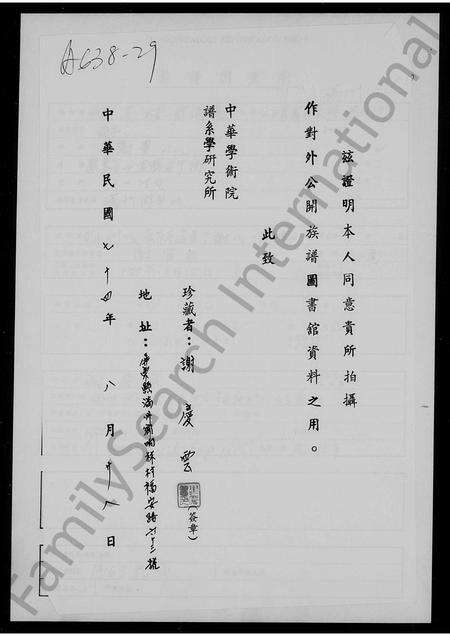 A638-29
茲證明本人同意貴所拍攝
作對外公開族譜圖書館資料之用。
此致
中華學術院
譜系學研究所
珍藏者：謝慶雲（簽章）
地址：屏東縣滿州鄉 村福安路 號
中華民國七十四年八月十八日
FamilySearch International